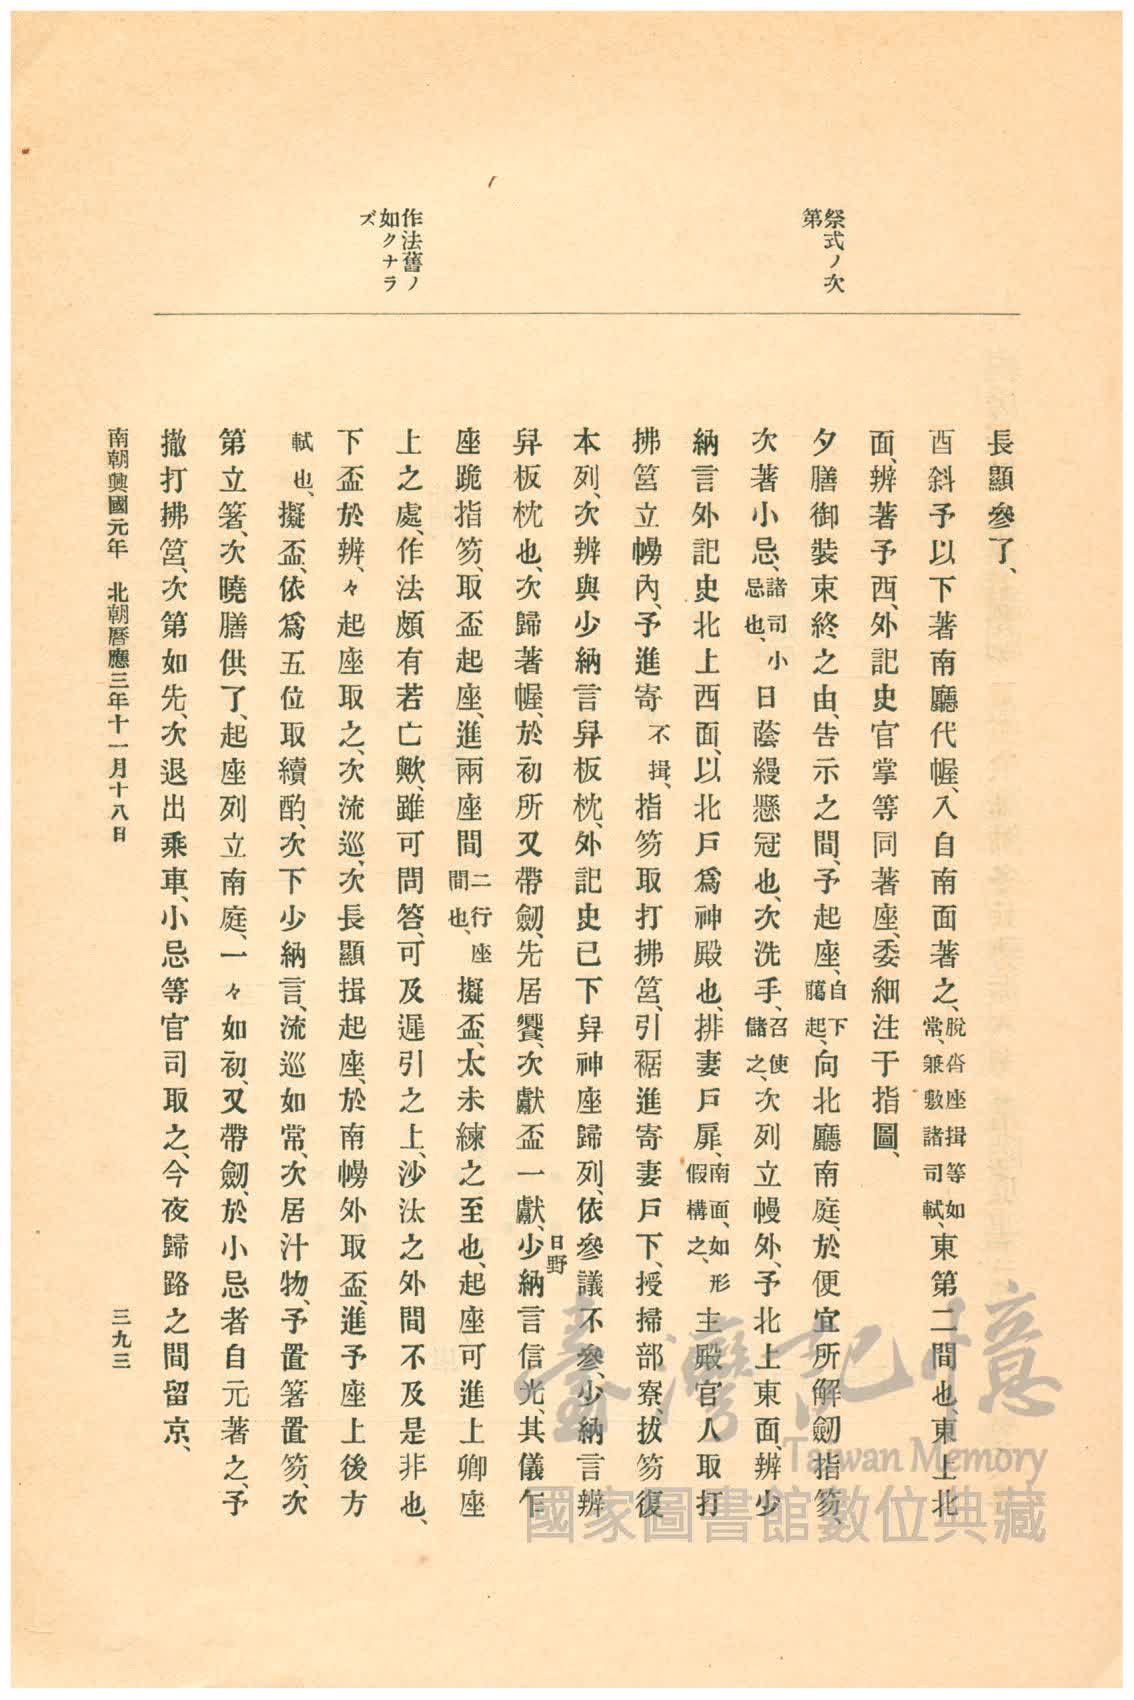 祭式ノ次
第
作法舊ノ
如クナラ
ズ
長顯參了、
酉斜予以下著南廳代幄、入自南面著之、脫沓座揖等如常、兼敷諸司軾、東第二間也、東上北
面、辨著予西、外記史官掌等同著座、委細注于指圖、
夕膳御裝束終之由、告示之間、予起座、自下﨟起、向北廳南庭、於便宜所解劒指笏、
次著小忌、諸司小忌也、日蔭縵懸冠也、次洗手、召使儲之、次列立幔外、予北上東面、辨少
納言外記史北上西面、以北戶爲神殿也、排妻戶扉、南面、如形假構之、主殿官人取打
拂筥立幔內、予進寄不揖、指笏取打拂筥、引裾進寄妻戶下、授掃部寮、拔笏復
本列、次辨與少納言舁板枕、外記史已下舁神座歸列、依參議不參、少納言辨
舁板枕也、次歸著幄、於初所又帶劒、先居饗、次獻盃一獻、少納言信光、其儀乍
日野
座跪指笏、取盃起座、進兩座間二行座間也、擬盃、太未練之至也、起座可進上卿座
上之處、作法頗有若亡歟、雖可問答、可及遲引之上、沙汰之外間不及是非也、
下盃於辨、々起座取之、次流巡、次長顯揖起座、於南幔外取盃、進予座上後方
軾也、擬盃、依爲五位取續酌、次下少納言、流巡如常、次居汁物、予置箸置笏、次
第立箸、次曉膳供了、起座列立南庭、一々如初、又帶劒、於小忌者自元著之、予
撤打拂筥、次第如先、次退出乘車、小忌等官司取之、今夜歸路之間留京、
南朝興國元年 北朝曆應三年十一月十八日
三九三
臺灣記憶
Taiwan Memory
國家圖書館數位典藏